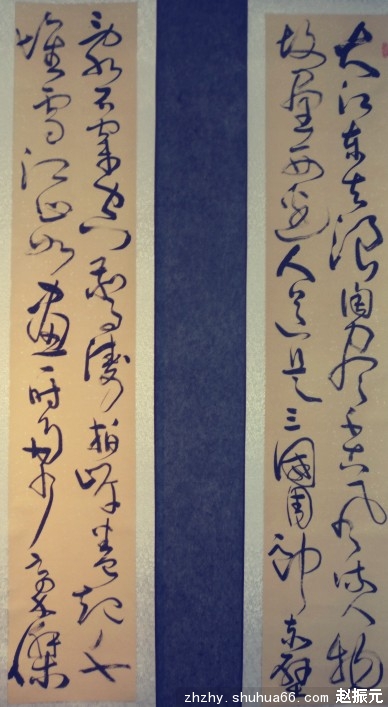 大江東去浪淘盡千古風流人物
故壘西邊人道是三國周郎赤壁
亂石穿空驚濤拍岸卷起千
堆雪江山如畫一時多少豪傑
zhzhy.shuhua66.com 赵振元